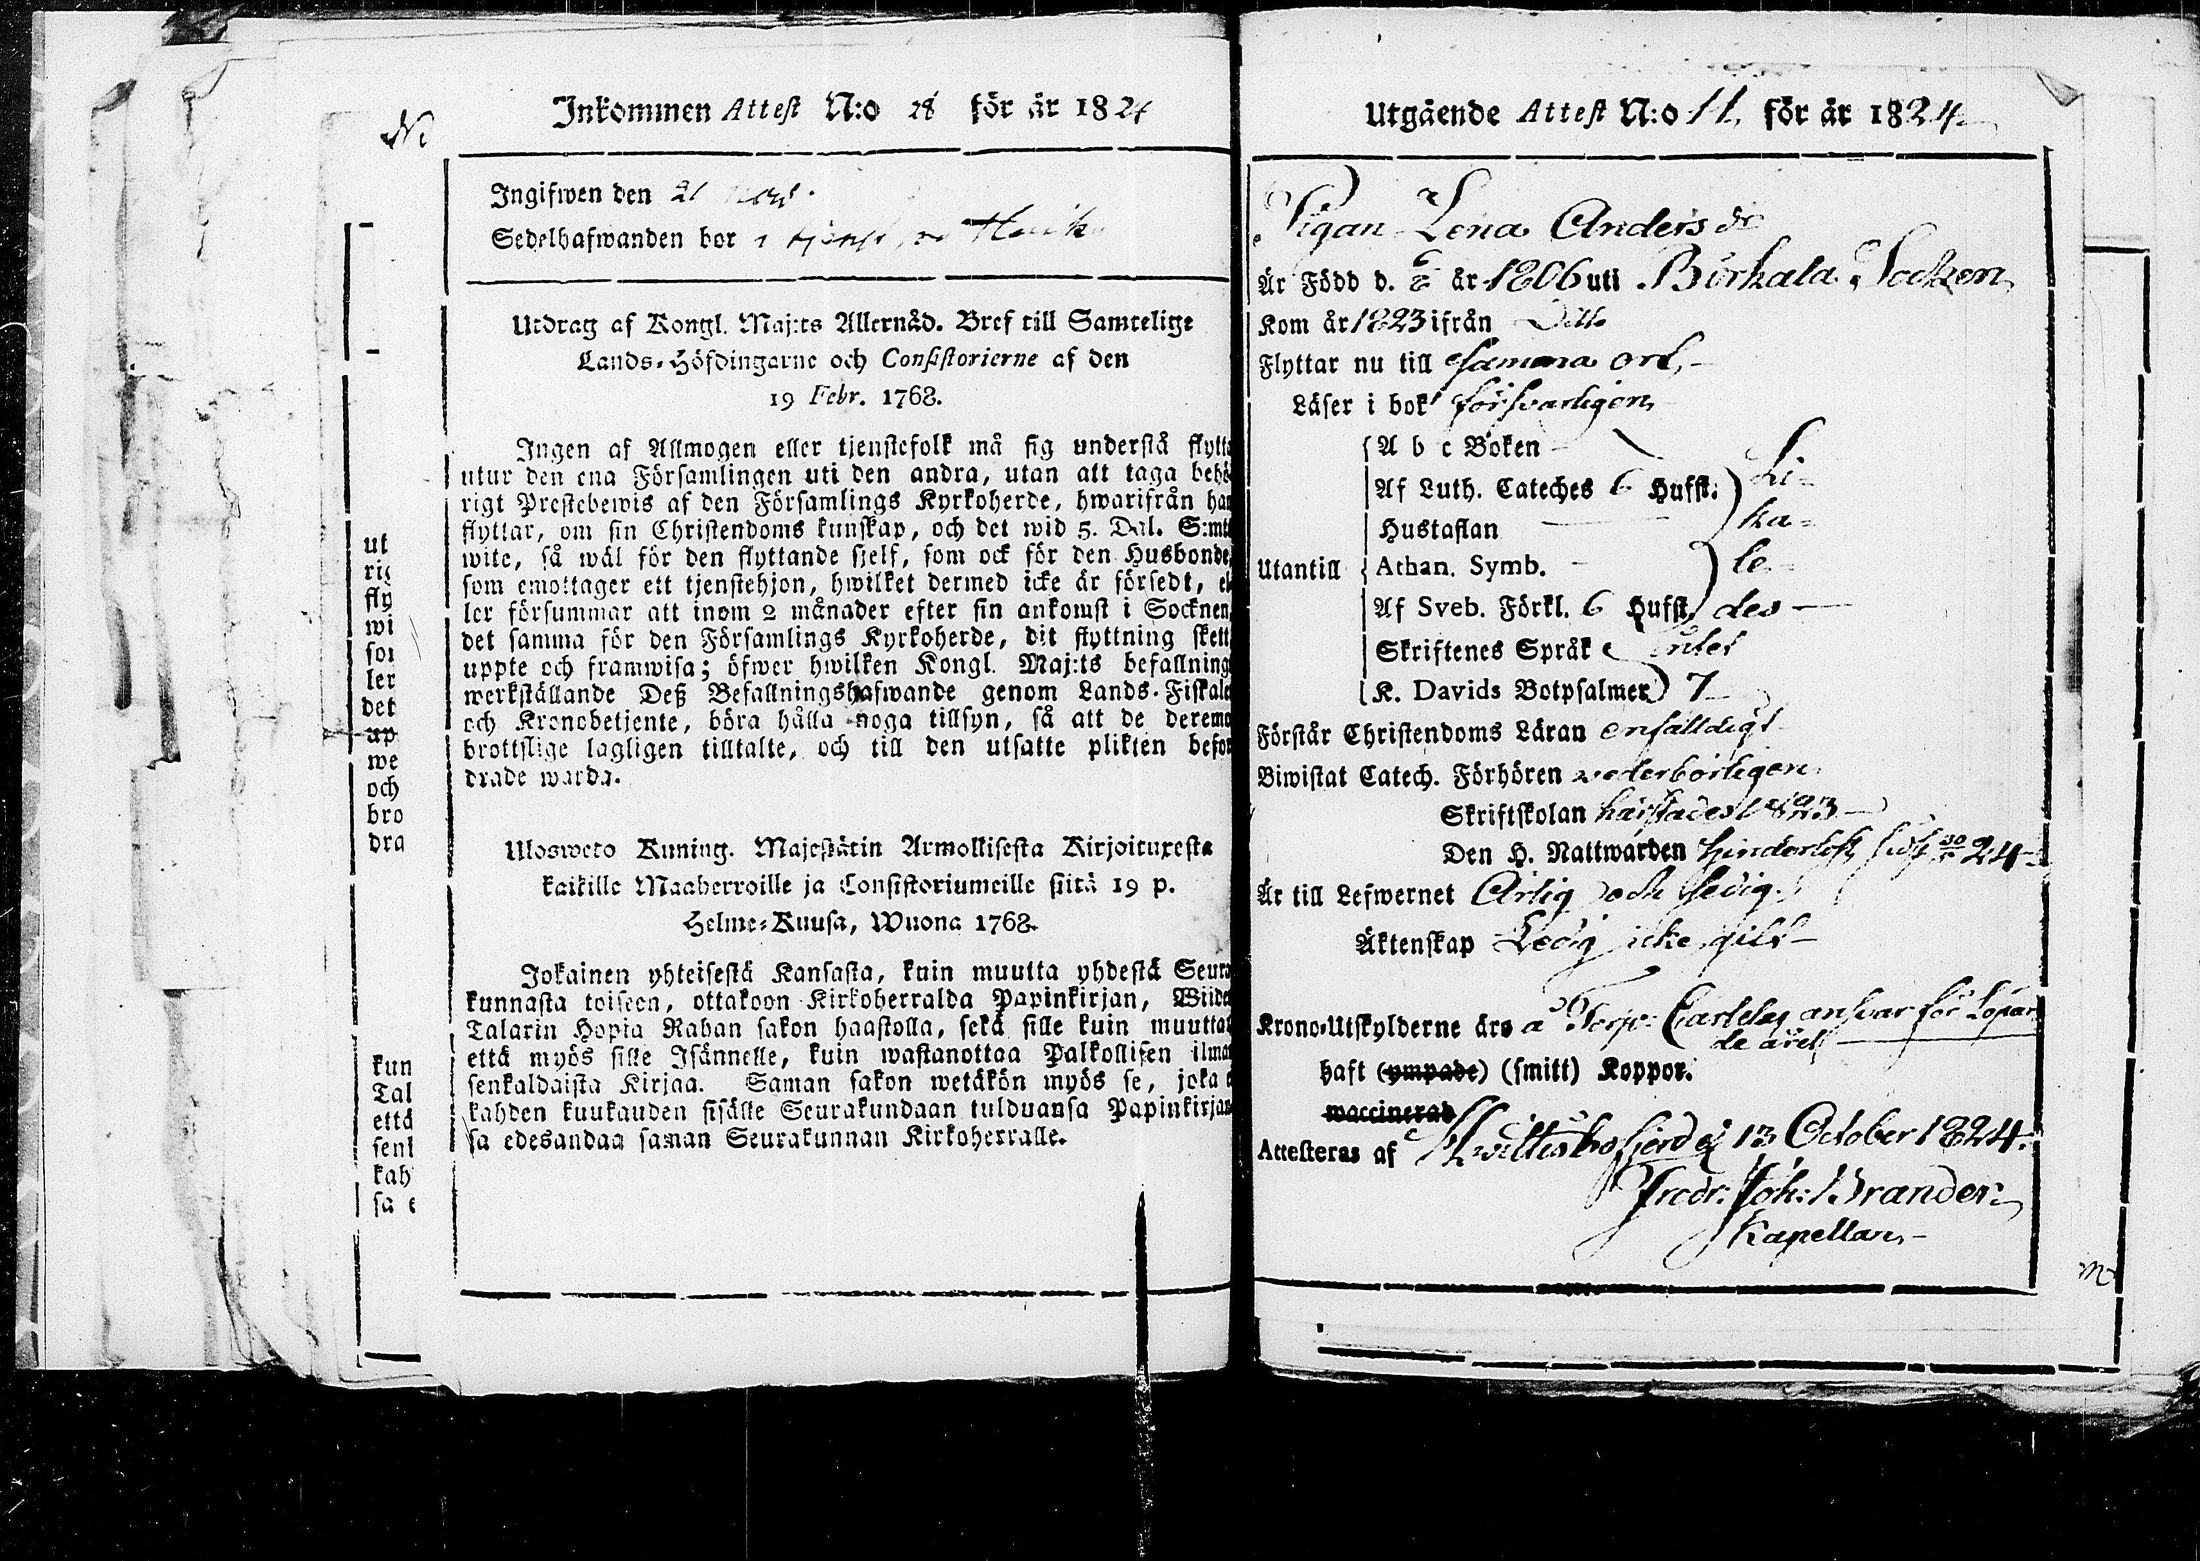 Inkommen Attest N:o 28 för år 1824
Ingifwen den 21 Nov.
Sedelhafwanden bor i
Utdrag af Kongl. Maj:ts Allernåd. Bref till Samtelige
Lands-Höfdingarne och Consistorierne af den
19 Febr. 1768.
Ingen af Allmogen eller tjenstefolk må sig understå flytta
utur den ena Församlingen uti den andra, utan att taga behö
rigt Prestebewis af den Församlings Kyrkoherde, hwarifrån han
flyttar, om sin Christendoms kunskap, och det wid 5. Dal. S:mts
wite, så wäl för den flyttande sjelf, som ock för den Husbonde,
som emottager ett tjenstehjon, hwilket dermed icke är försedt, el
ler försummar att inom 2 månader efter sin ankomst i Socknen,
det samma för den Församlings Kyrkoherde, dit flyttning skett
uppte och framwisa; öfwer hwilken Kongl. Maj:ts befallning
werkställande Deß Befallningshafwande genom Lands-Fiskale
och Kronobetjente, böra hålla noga tillsyn, så att de deremo
brottslige lagligen tilltalte, och till den utsatte plikten befor
drade warda.
Ulosweto Kuning. Majestätin Armollisesta Kirjoituxesta
kaikille Maaherroille ja Consistoriumeille siitä 19 p.
Helme-Kuusa, Wuona 1768.
Jokainen yhteisestä Kansasta, kuin muutta yhdestä Seura
kunnasta toiseen, ottakoon Kirkoherralda Papinkirjan, Wiide
Talarin Hopia Rahan sakon haastolla, sekä sille kuin muutta
että myös sille Isännelle, kuin wastanottaa Palkollisen ilma
senkaldaista Kirjaa. Saman sakon wetäkön myös se, joka
kahden kuukauden sisälle Seurakundaan tulduansa Papinkirja
sa edesandaa saman Seurakunnan Kirkoherralle.
ut
rig
fly
wi
som
ler
det
up
we
och
bro
dra
kun
Tal
että
senk
kah
sa e
Utgående Attest N:o 11. för år 1824.
Pigan Lena Andersdr
Är Född d. år 1806 uti Birkala Socken
Kom år 1823 ifrån Ditto
Flyttar nu till samma ort,
Läser i bok försvarligen
A b c Boken
Af Luth. Cateches 6 Hufst. Li-
Hustaflan ka-
Utantill Athan. Symb. le-
Af Sveb. Förkl. 6 Hufst. des
Skriftenes Språk
K. Davids Botpsalmer 7
Förstår Christendoms Läran enfalldigt
Biwistat Catech. Förhören vederbörligen
Skriftskolan härstädes 1823
Den H. Nattwarden hinderlöst sidst 24
Är till Lefwernet Ärlig och sedig.
Äktenskap Ledig icke gift
Krono-Utskylderne äro å Torp: ansvar för löpan
de året
haft (ympade) (smitt) Koppor.
waccinerad
Attesteras af d 13 October 1824.
Fredr: Joh: Brander
Kapellan